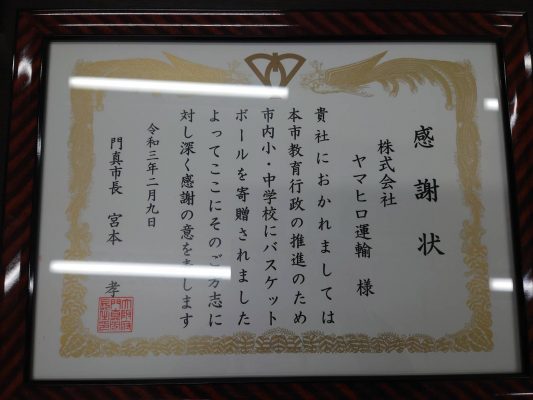 感謝状
株式会社
ヤマヒロ運輸 様
貴社におかれましては
本市教育行政の推進のため
市内小・中学校にバスケット
ボールを寄贈されました
よってここにそのご芳志に
対し深く感謝の意を表します
令和三年二月九日
門真市長 宮本 孝